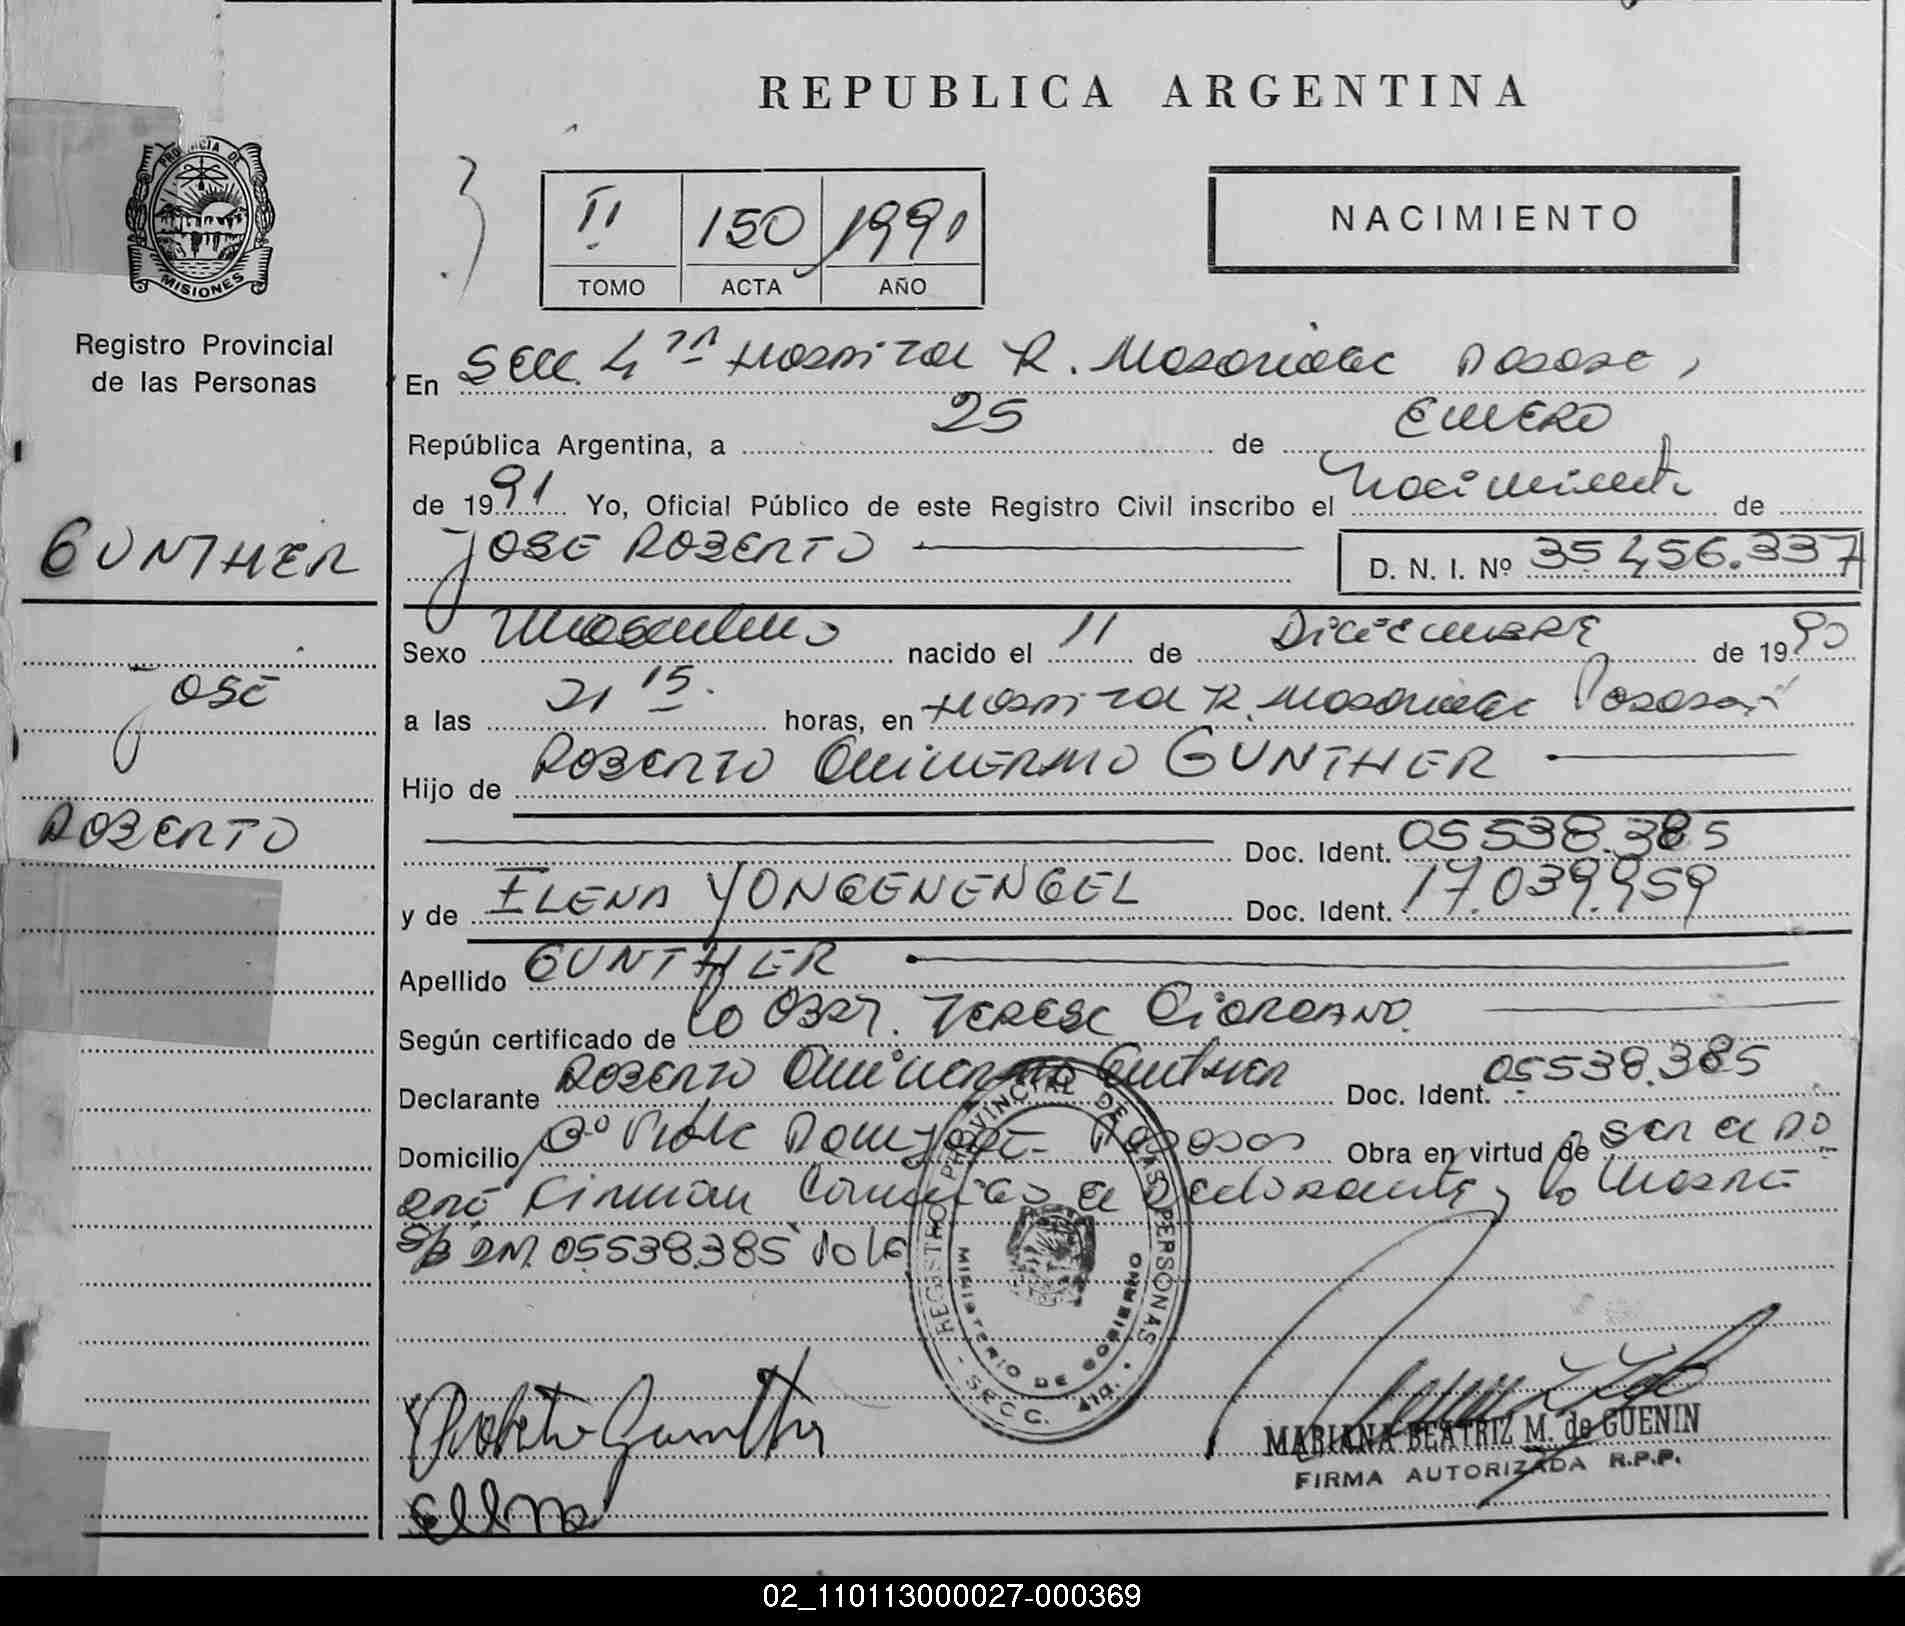 REPUBLICA ARGENTINA
PROVINCIA DE
MISIONES
Registro Provincial
de las Personas
II 150 1991
TOMO ACTA AÑO
NACIMIENTO
En Secc. 4ta Hospital R. Madariaga Posadas,
República Argentina, a 25 de ENERO
de 1991 Yo, Oficial Público de este Registro Civil inscribo el Nacimiento de
JOSE ROBERTO D. N. I. Nº 35456.337
GUNTHER
JOSE
ROBERTO
Sexo Masculino nacido el 11 de DICIEMBRE de 1990
a las 21 15 horas, en Hospital R. Madariaga Posadas
Hijo de ROBERTO GUILLERMO GUNTHER
Doc. Ident. 05538.385
y de ELENA Doc. Ident. 17.039.959
Apellido GUNTHER
Según certificado de la Obst. TERESA GIORDANO.
Declarante ROBERTO Guillermo Gunther Doc. Ident. 05538.385
Domicilio Posadas Obra en virtud de ser el PADRE
Firman el Declarante y la Madre
05538.385 Vale
REGISTRO PROVINCIAL DE LAS PERSONAS
MINISTERIO DE GOBIERNO
SECC. 4ta.
Roberto Gunther
Elena
MARIANA BEATRIZ M. de GUENIN
FIRMA AUTORIZADA R.P.P.
02_110113000027-000369